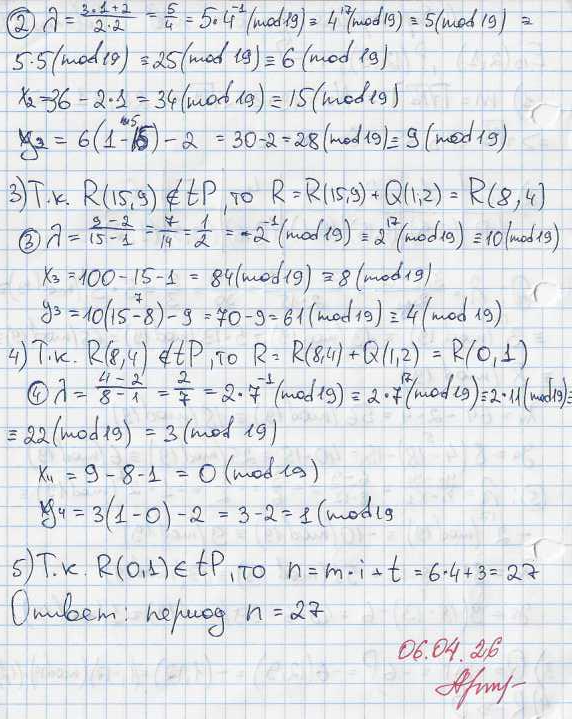 ② λ = (3·1+2)/(2·2) = 5/4 = 5·4⁻¹ (mod 19) ≡ 4¹⁷ (mod 19) ≡ 5 (mod 19) ≡
5·5 (mod 19) ≡ 25 (mod 19) ≡ 6 (mod 19)
x₂ = 36 − 2·1 = 34 (mod 19) ≡ 15 (mod 19)
y₂ = 6(1−15) − 2 = 30−2 = 28 (mod 19) ≡ 9 (mod 19)
3) Т.к. R(15,9) ∉ tP, то R = R(15,9) + Q(1,2) = R(8,4)
③ λ = (9−2)/(15−1) = 7/14 = 1/2 = 2⁻¹ (mod 19) ≡ 2¹⁷ (mod 19) ≡ 10 (mod 19)
x₃ = 100 − 15 − 1 = 84 (mod 19) ≡ 8 (mod 19)
y₃ = 10(15−8) − 9 = 70−9 = 61 (mod 19) ≡ 4 (mod 19)
4) Т.к. R(8,4) ∉ tP, то R = R(8,4) + Q(1,2) = R(0,1)
④ λ = (4−2)/(8−1) = 2/7 = 2·7⁻¹ (mod 19) ≡ 2·7¹⁷ (mod 19) ≡ 2·11 (mod 19) ≡
≡ 22 (mod 19) = 3 (mod 19)
x₄ = 9 − 8 − 1 = 0 (mod 19)
y₄ = 3(1−0) − 2 = 3−2 = 1 (mod 19
5) Т.к. R(0,1) ∈ tP, то n = m·i + t = 6·4+3 = 27
Ответ: период n = 27
06.04.26